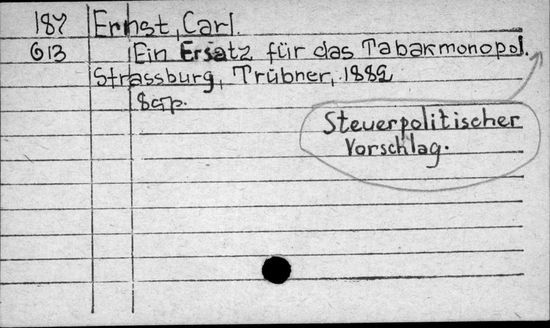 187 Ernst, Carl.
G13 Ein Ersatz für das Tabakmonopol.
Strassburg, Trübner, 1882
Steuerpolitischer
Vorschlag.